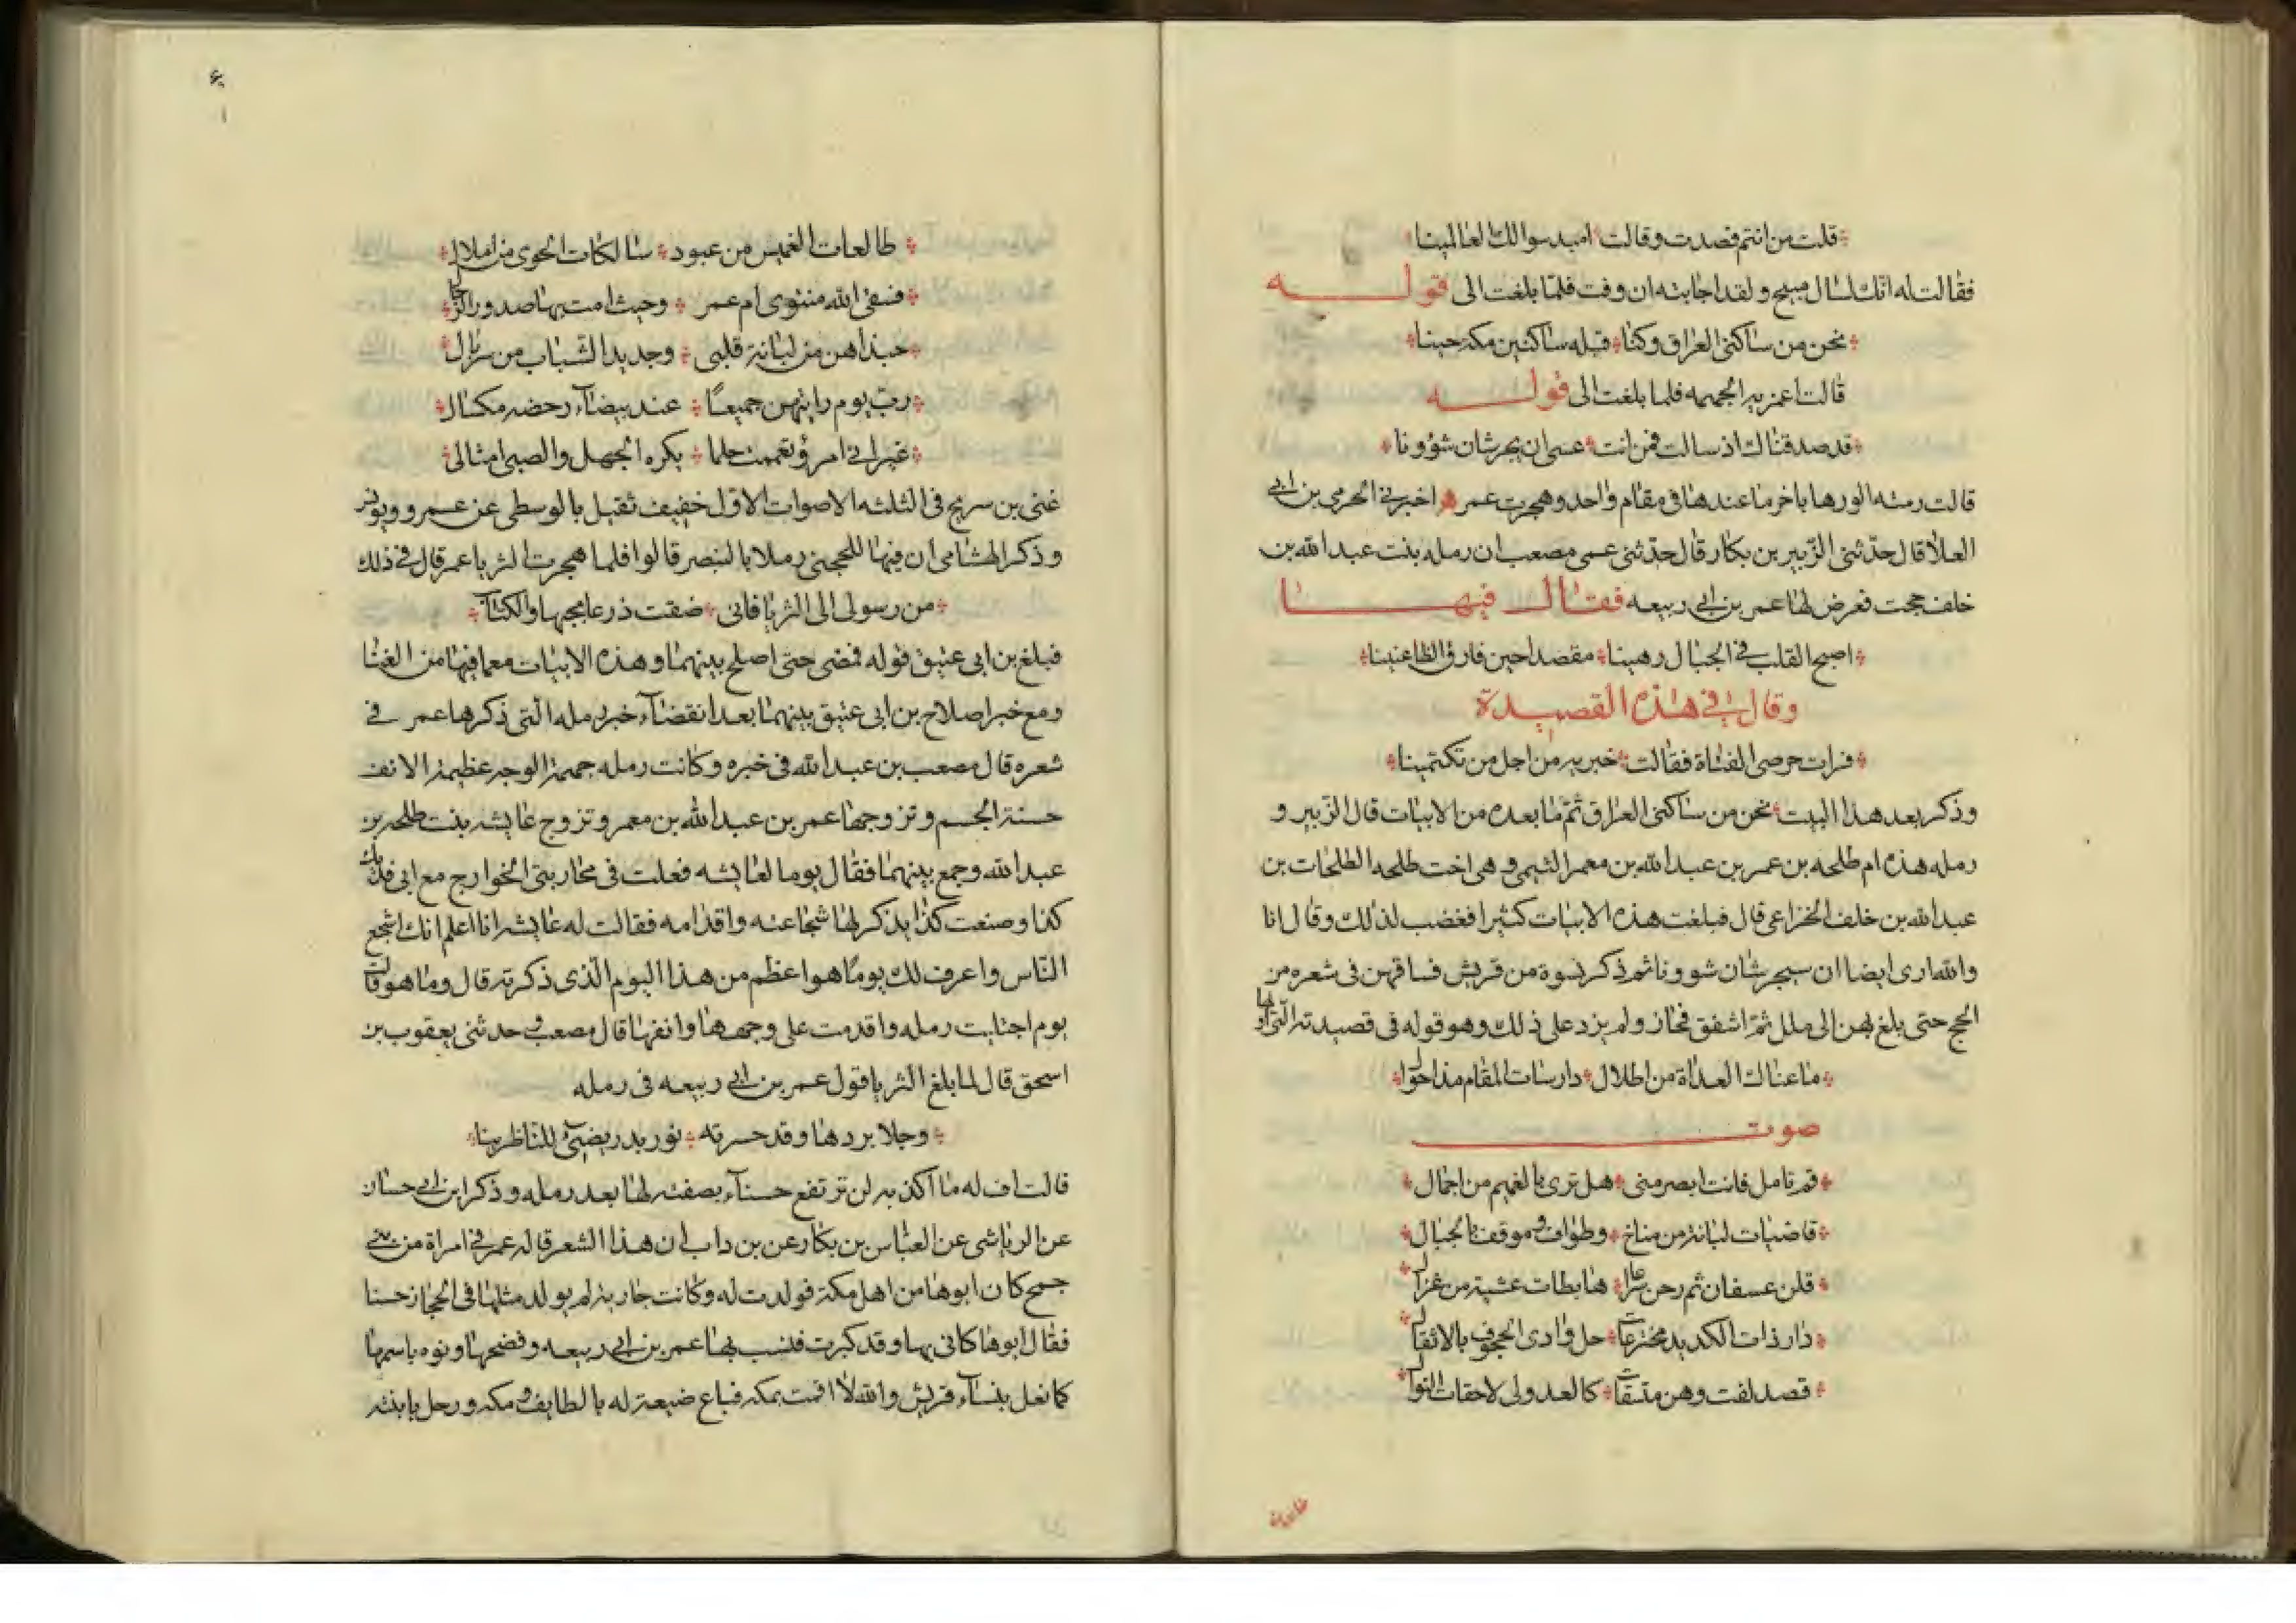 قلت من انتم فصدت وقالت * امبد سوالك العالمينا
فقالت له انك لسال مبيح ولقد اجابته ان وفت فلما بلغت الى قوله
نحن من ساكنى العراق وكنا * قبله ساكنين مكة حينا
قالت اعمزيه الجهمه فلما بلغت الى قوله
قد صدقناك اذ سالت فمن انت * عسى ان يجر شان شؤونا
قالت رمته الورها باخر ما عندها فى مقام واحد وهجرت عمر * اخبرنى الحرمى بن ابى
العلا قال حدثنى الزبير بن بكار قال حدثنى عمى مصعب ان رمله بنت عبد الله بن
خلف حجت فعرض لها عمر بن ابى ربيعه فقال فيها
اصبح القلب فى الجبال رهينا * مقصدا حين فارق الظاعنينا
وقال فى هذه القصيدة
فرات حرصى الفتاة فقالت * خبريه من اجل من تكتمينا
وذكر بعد هذا البيت * نحن من ساكنى العراق ثم ما بعده من الابيات قال الزبير و
رمله هذه ام طلحه بن عمر بن عبد الله بن معمر التيمى وهى اخت طلحه الطلحات بن
عبد الله بن خلف الخزاعى قال فبلغت هذه الابيات كثيرا فغضب لذلك وقال انا
والله ارى ايضا ان سيجر شان شوونا ثم ذكر نسوة من قريش فساقهن فى شعره من
الحج حتى بلغ بهن الى ملل ثم اشفق فجاز ولم يزد على ذلك وهو قوله فى قصيدته التى اولها
ما عناك الغداة من اطلال * دارسات المقام مذ احوال
صوت
قم تامل فانت ابصر منى * هل ترى بالغميم من اجمال
قاضيات لبانة من مناخ * وطواف وموقف بالجبال
قلن عسفان ثم رحن سراعا * هابطات عشية من غزال
دار ذات الكديد مخترعات * حل وادى الحجوف بالاثقال
قصد لفت وهن متسقات * كالعدولى لاحقات التوال
طالعات الغميس من عبود * سالكات الحوى من املال
فسقى الله منتوى ام عمر * وحيث امت بها صدور الرحال
حبذا هن من لبانة قلبى * وجديد الشباب من سربال
رب يوم راينهن جميعا * عند بيضاء رخضه مكسال
غير انى امرؤ تعممت حلما * يكره الجهل والصبى امثالى
غنى بن سريج فى الثلثه الاصوات الاول خفيف ثقيل بالوسطى عن عمرو ويونس
وذكر الهشامى ان فيها للحجبى رملا بالبنصر قالوا فلما هجرت الثريا عمر قال فى ذلك
من رسولى الى الثريا فانى * ضقت ذرعا بهجرها والكتاب
فبلغ بن ابى عتيق قوله فمضى حتى اصلح بينهما وهذه الابيات معما فيها من الغنا
ومع خبر اصلاح بن ابى عتيق بينهما بعد انقضاء خبر رمله التى ذكرها عمر فى
شعره قال مصعب بن عبد الله فى خبره وكانت رمله جهمة الوجه عظيمة الانف
حسنة الجسم وتزوجها عمر بن عبد الله بن معمر وتزوج عايشه بنت طلحه بن
عبد الله وجمع بينهما فقال يوما لعايشه فعلت فى محاربتى الخوارج مع ابى فديك
كذا وصنعت كذا يذكر لها شجاعته واقدامه فقالت له عايشه انا اعلم انك اشجع
الناس واعرف لك يوما هو اعظم من هذا اليوم الذى ذكرته قال وما هو قالت
يوم اجتليت رمله واقدمت على وجهها وانفها قال مصعب وحدثنى يعقوب بن
اسحق قال لما بلغ الثريا قول عمر بن ابى ربيعه فى رمله
وجلا بردها وقد حسرته * نور بدر يضىء للناظرينا
قالت اف له ما اكذبه لن ترتفع حسناء بصفته لها بعد رمله وذكر ابن ابى حسان
عن الرياشى عن العباس بن بكار عن بن داب ان هذا الشعر قاله عمر فى امراة من بنى
جمح كان ابوها من اهل مكة فولدت له وكانت جارية لم يولد مثلها فى الحجاز حسنا
فقال ابوها كانى بها وقد كبرت فنسب بها عمر بن ابى ربيعه وفضحها ونوه باسمها
كما فعل بنساء قريش والله لا اقمت بمكه فباع ضيعة له بالطايف ومكه ورحل بابنته